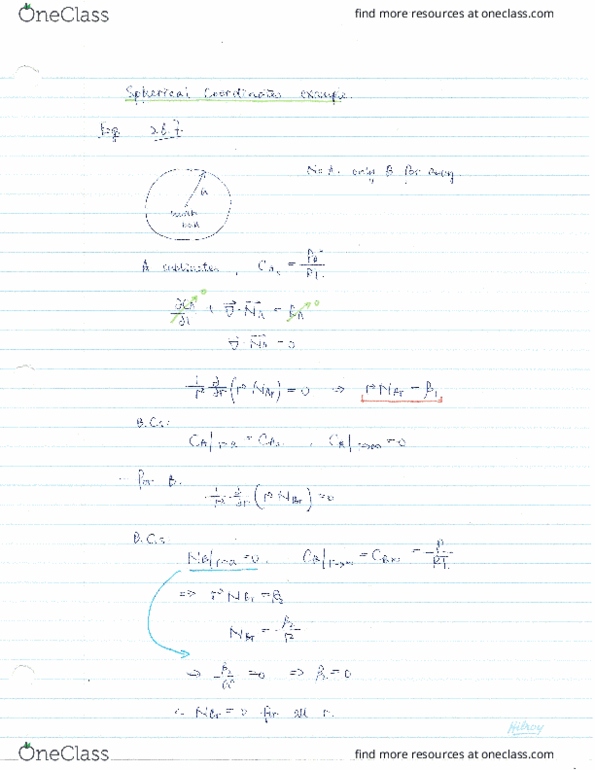 OneClass
find more resources at oneclass.com
Spherical Coordinates example.
Eg. 26.7.
Note. only B far away.
a
A sublimates, C_As = P_A* / RT.
∂C_A/∂t + ∇·N_A = R_A
0 0
∇·N_A = 0
1/r² ∂/∂r (r² N_Ar) = 0 ⇒ r² N_Ar = β₁
B.C.s:
C_A|r=a = C_As , C_A|r→∞ = 0
For B.
1/r² ∂/∂r (r² N_Br) = 0
B.C.s:
N_B|r=a = 0. C_B|r→∞ = C_B∞ = P/RT.
⇒ r² N_Br = β₂
N_Br = β₂/r²
⇒ β₂/a² = 0 ⇒ β₂ = 0
∴ N_Br = 0 for all r.
Hilroy
OneClass
find more resources at oneclass.com